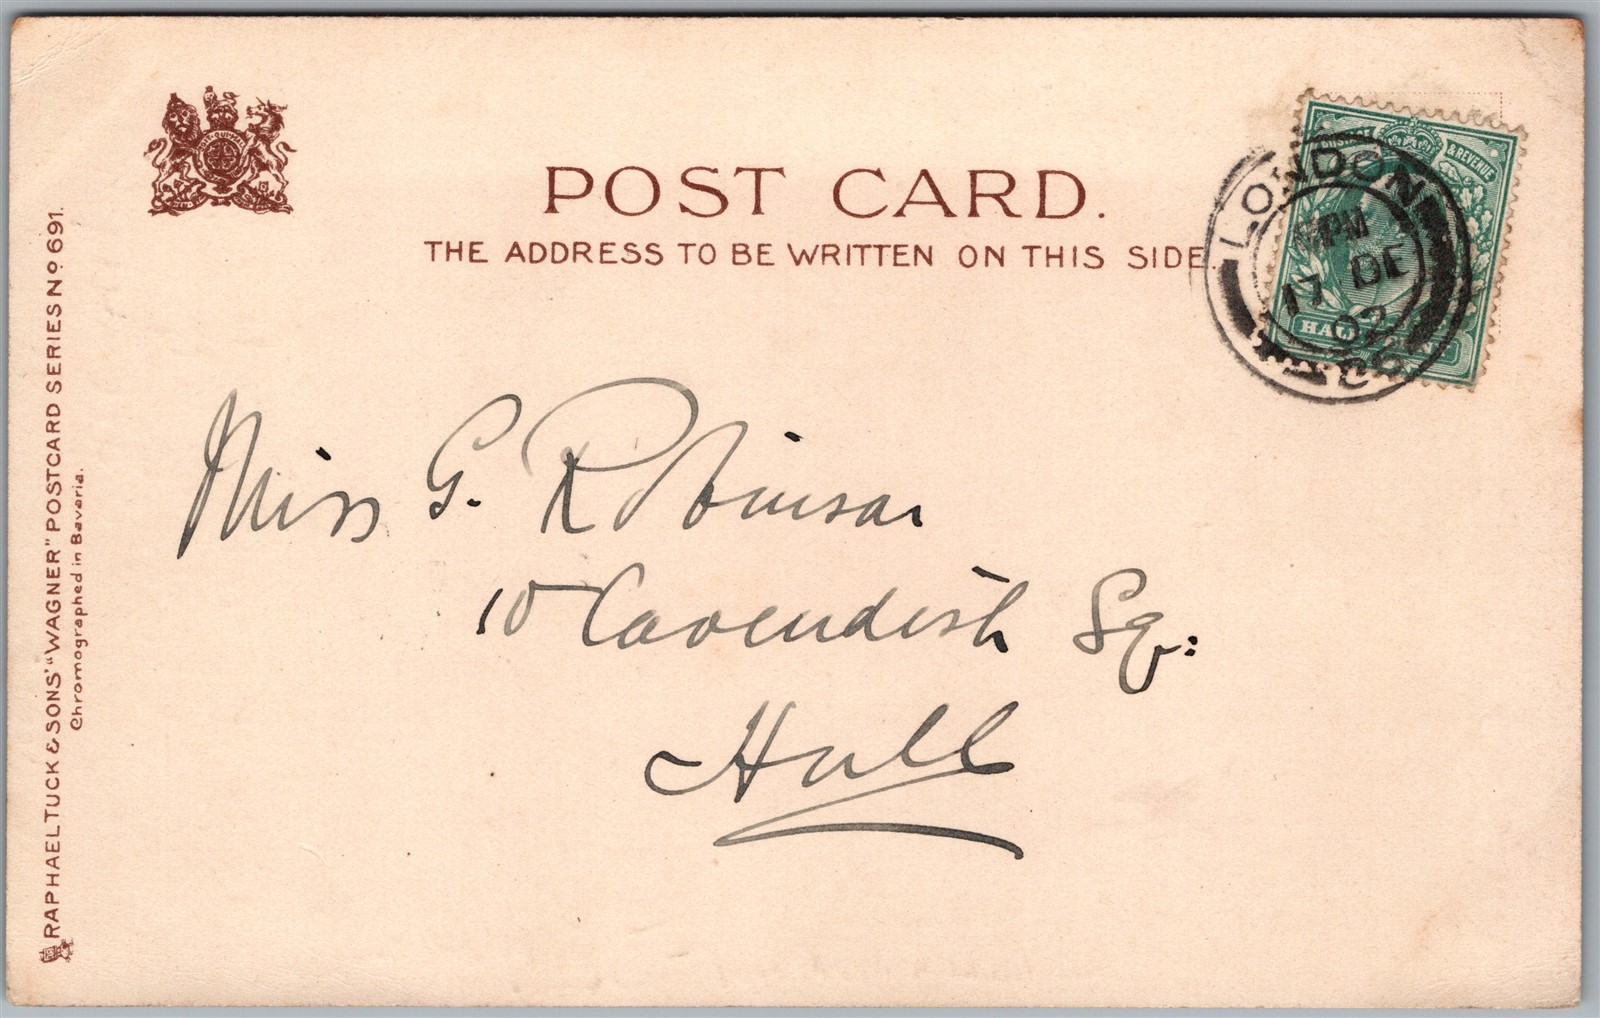 POST CARD.
THE ADDRESS TO BE WRITTEN ON THIS SIDE.
& REVENUE
LONDON
PM
17 DE
02
HALF
Miss G. Robinson
10 Cavendish Sq:
Hull
RAPHAEL TUCK & SONS' "WAGNER" POSTCARD SERIES No 691.
Chromographed in Bavaria.